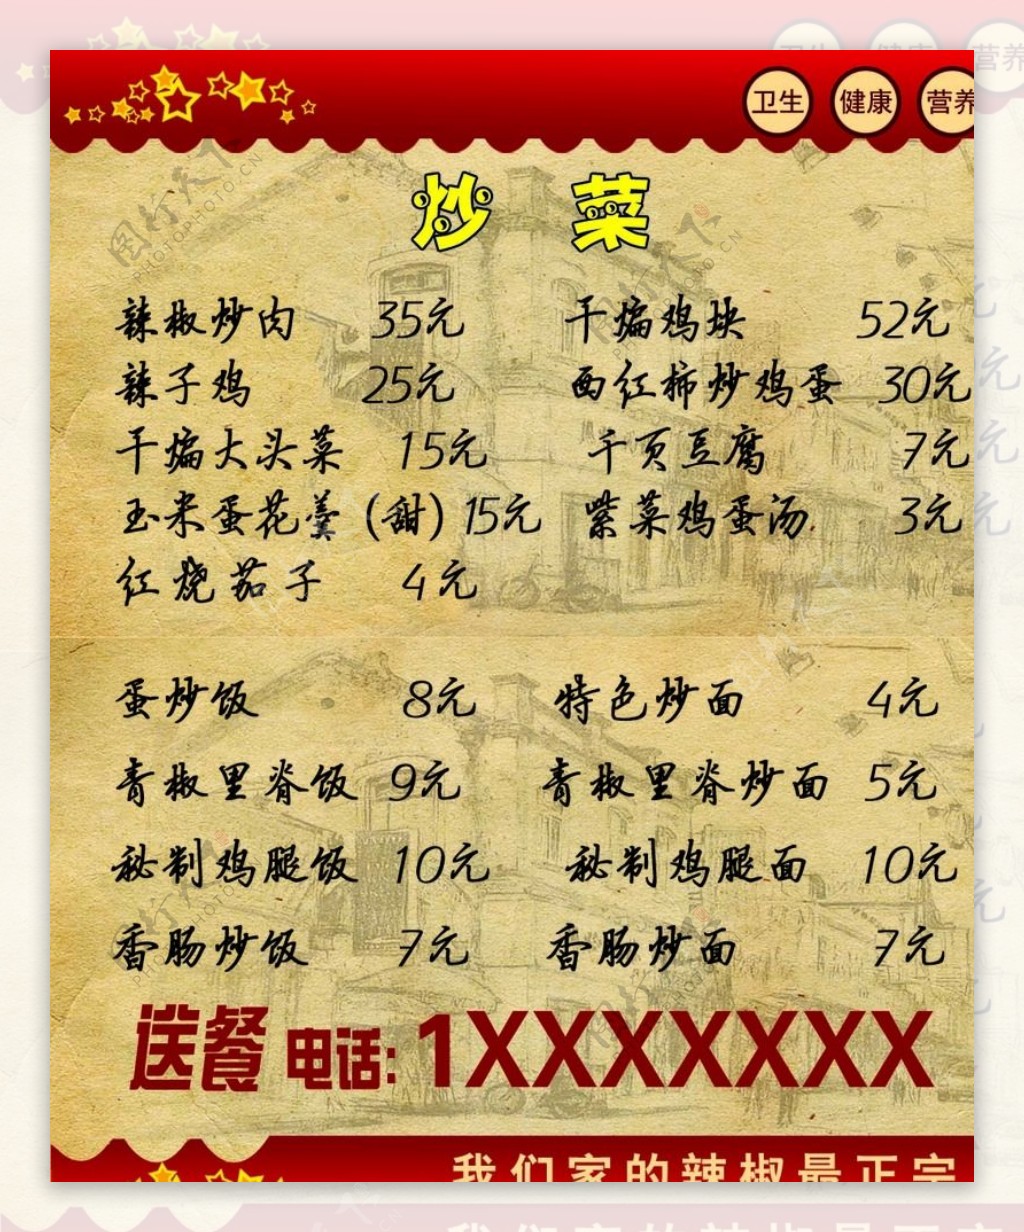 卫生 健康 营养
炒 菜
辣椒炒肉 35元 干煸鸡块 52元
辣子鸡 25元 西红柿炒鸡蛋 30元
干煸大头菜 15元 千页豆腐 7元
玉米蛋花羹（甜）15元 紫菜鸡蛋汤 3元
红烧茄子 4元
蛋炒饭 8元 特色炒面 4元
青椒里脊饭 9元 青椒里脊炒面 5元
秘制鸡腿饭 10元 秘制鸡腿面 10元
香肠炒饭 7元 香肠炒面 7元
送餐 电话: 1XXXXXXX
我们家的辣椒最正宗